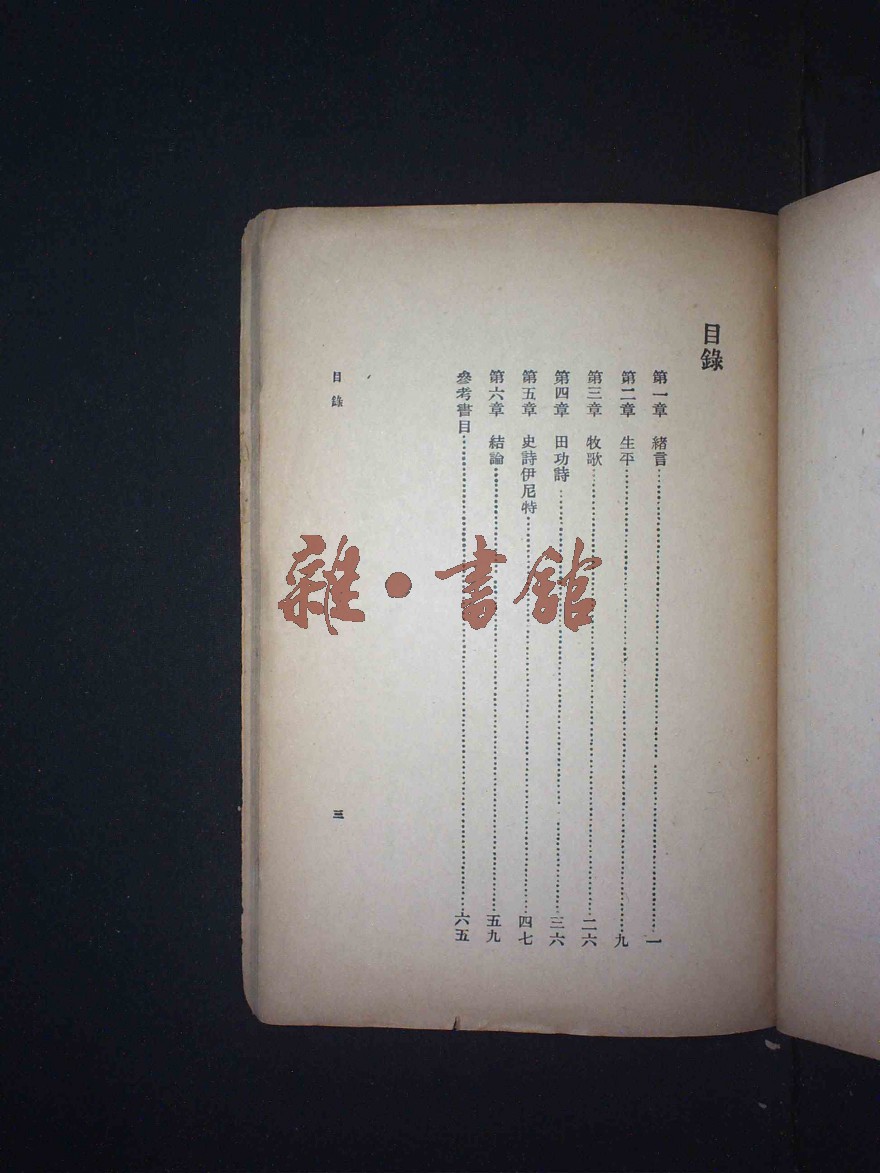 目錄
第一章　緒言……一
第二章　生平……九
第三章　牧歌……二六
第四章　田功詩……三六
第五章　史詩伊尼特……四七
第六章　結論……五九
參考書目……六五
目錄
三
雜·書館